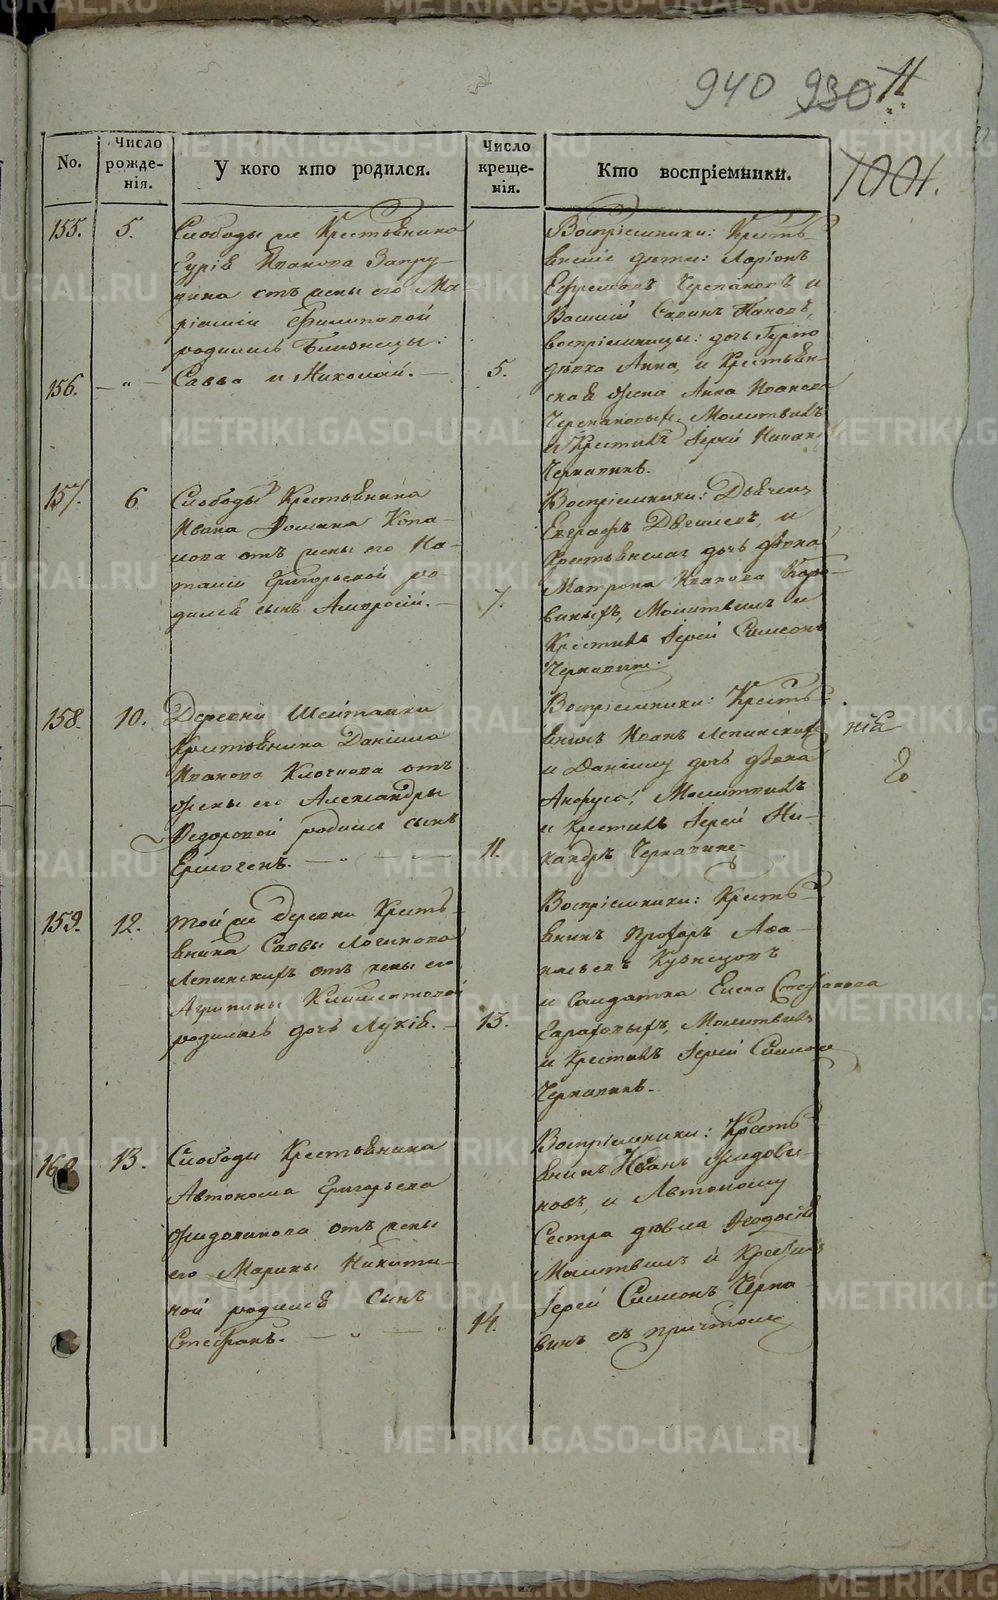 940 930 11
1001.
No.
Число рожденія.
У кого кто родился.
Число крещенія.
Кто воспріемники.
155.
5.
Слободы же Крестьянина
Гурія Иванова Запру-
дина отъ жены его Ма-
ріамии Филиповой
родились Близнецы:
156.
— " —
Савва и Николай. —
5.
Воспріемники: Кресть-
янскіе дети: Ларіонъ
Ефремовъ Черепановъ и
Василій Савинъ Пановъ,
воспріемницы: дочь
девка Анна, и Крестьян-
ская жена Анна Иванова
Черепановыхъ, Молитвилъ
и Крестилъ Іерей
Чернавинъ.
157.
6
Слободы Крестьянина
Ивана
отъ жены его На-
таліи Григорьевой ро-
дился сынъ Амвросій. —
7.
Воспріемники:
Евграфъ и
Крестьянская дочь девка
Матрона Иванова
Молитвилъ и
Крестилъ Іерей Симеонъ
Чернавинъ.
158.
10.
Деревни Шайтанки
Крестьянина Даніила
Иванова Клочкова отъ
жены его Александры
Федоровой родился сынъ
Ермогенъ. — " —
11.
Воспріемники: Кресть-
янинъ Иванъ Лепинскихъ
и Даніилу дочь девка
Анфуса, Молитвилъ
и Крестилъ Іерей Ни-
кандръ Чернавинъ.
ніе
159.
12.
Той же деревни Кресть-
янина Саввы Логинова
Лепинскихъ отъ жены его
родилась дочь Лукія. —
13.
Воспріемники: Кресть-
янинъ Прохоръ Афа-
насьевъ Кузнецовъ
и Солдатка Елена Стефанова
Молитвилъ
и Крестилъ Іерей Симеонъ
Чернавинъ.
160
13.
Слободы Крестьянина
Автонома Григорьева
Жидовинова отъ жены
его Марины Никити-
ной родился сынъ
Стефанъ. — " —
14.
Воспріемники: Кресть-
янинъ Иванъ Жидови-
новъ, и Автоному
Сестра девка Феодосія
Молитвилъ и Крестилъ
Іерей Симеонъ Черна-
винъ съ причтомъ
METRIKI.GASO-URAL.RU